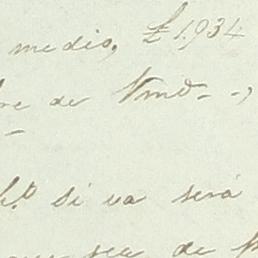 medio, £1.934
re de Vmd -,
si va será
sea de